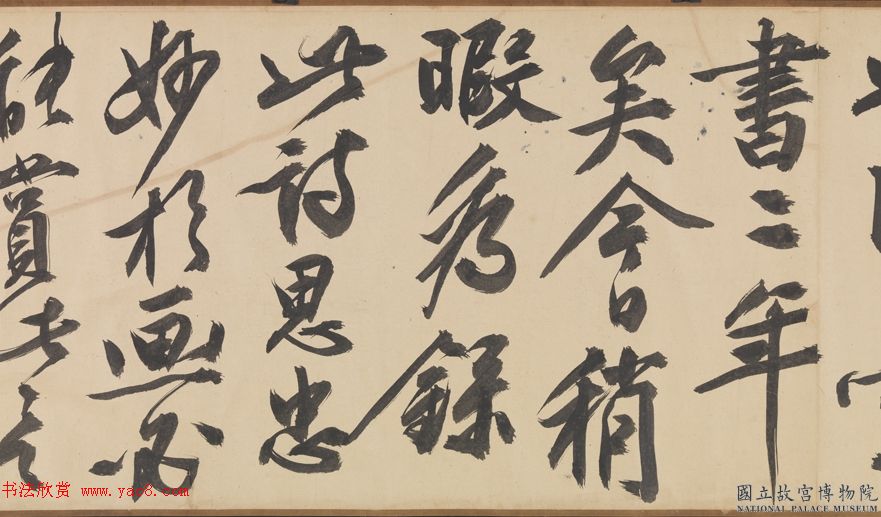 書二年
矣今日稍
暇為録
此詩思忠
妙於画必
能賞音
书法欣赏 www.yac8.com
國立故宮博物院
NATIONAL PALACE MUSEUM